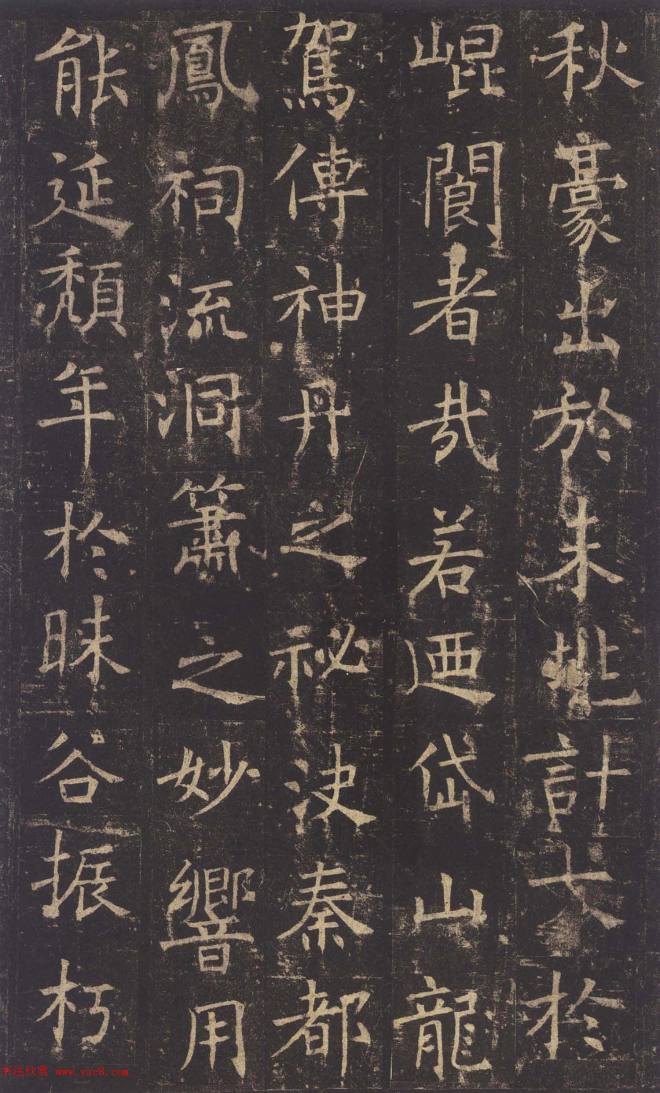 秋豪出於未兆計大於
崐閬者哉若迺岱山龍
駕傳神丹之祕決秦都
鳳祠流洞簫之妙響用
能延頹年於昧谷振朽
书法欣赏 www.yac8.com